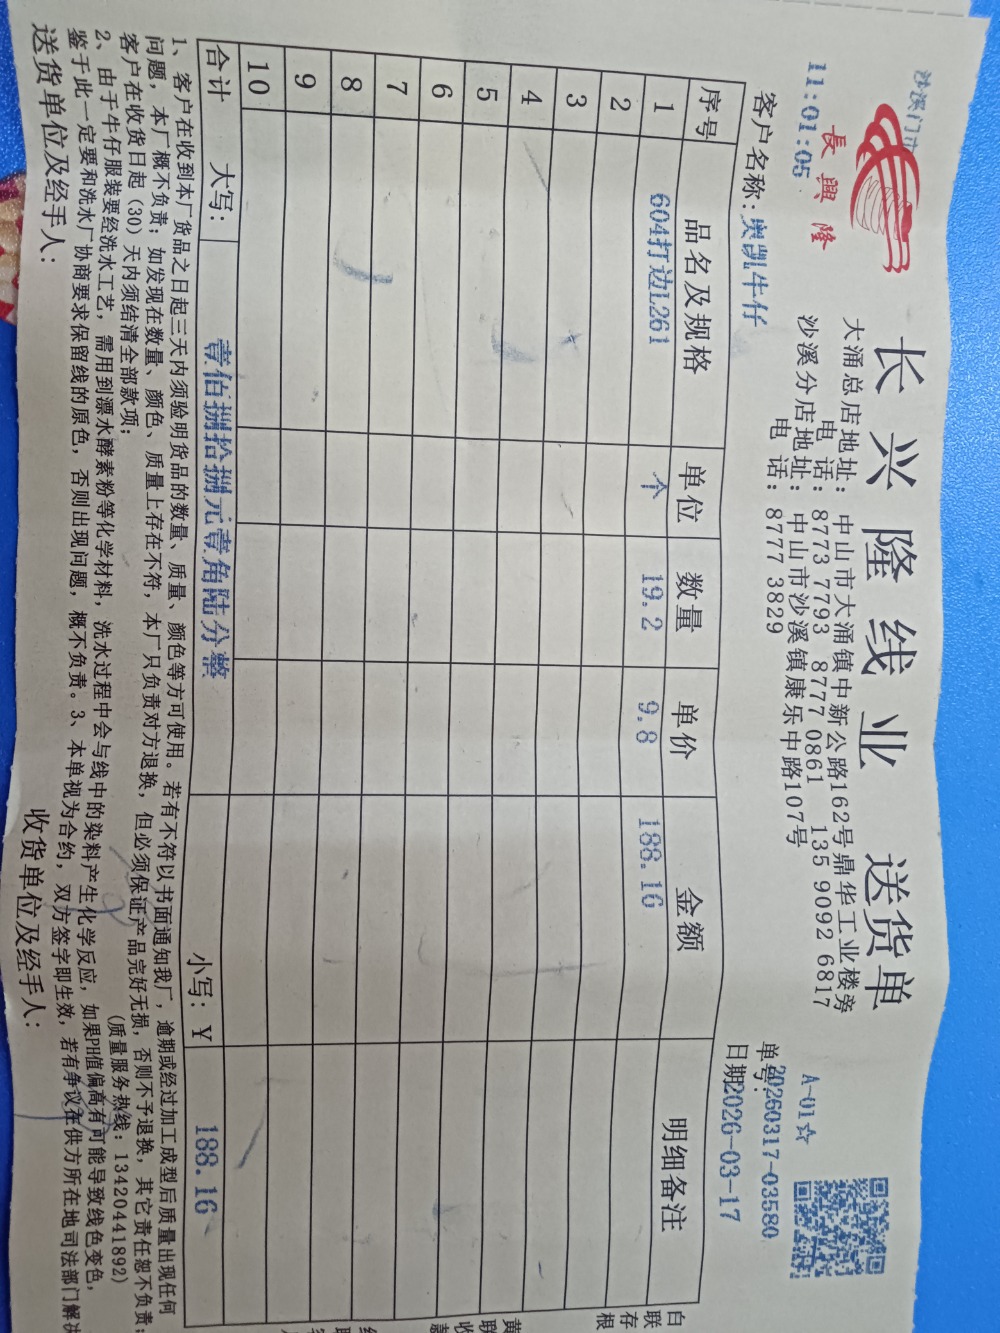 沙溪门市
11:01:05
長興隆
长兴隆线业 送货单
大涌总店地址：中山市大涌镇中新公路162号鼎华工业楼旁
电 话：8773 7793 8777 0861 135 9092 6817
沙溪分店地址：中山市沙溪镇康乐中路107号
电 话：8777 3829
A-01☆
单号：20260317-03580
客户名称：奥凯牛仔
日期2026-03-17
序号 品名及规格 单位 数量 单价 金额 明细备注
1 604打边L261 个 19.2 9.8 188.16
2
3
4
5
6
7
8
9
10
合计 大写： 壹佰捌拾捌元壹角陆分整 小写：￥ 188.16
白联存根
1、客户在收到本厂货品之日起三天内须验明货品的数量、质量、颜色等方可使用。若有不符以书面通知我厂，逾期或经过加工成型后质量出现任何
问题，本厂概不负责；如发现在数量、颜色、质量上存在不符，本厂只负责对方退换，但必须保证产品完好无损，否则不予退换，其它责任恕不负责；
客户在收货日起（30）天内须结清全部款项； (质量服务热线：13420441892)
2、由于牛仔服装要经洗水工艺，需用到漂水酵素粉等化学材料，洗水过程中会与线中的染料产生化学反应，如果PH值偏高有可能导致线色变色，
鉴于此一定要和洗水厂协商要求保留线的原色，否则出现问题，概不负责。3、本单视为合约，双方签字即生效，若有争议在供方所在地司法部门解决
送货单位及经手人： 收货单位及经手人：